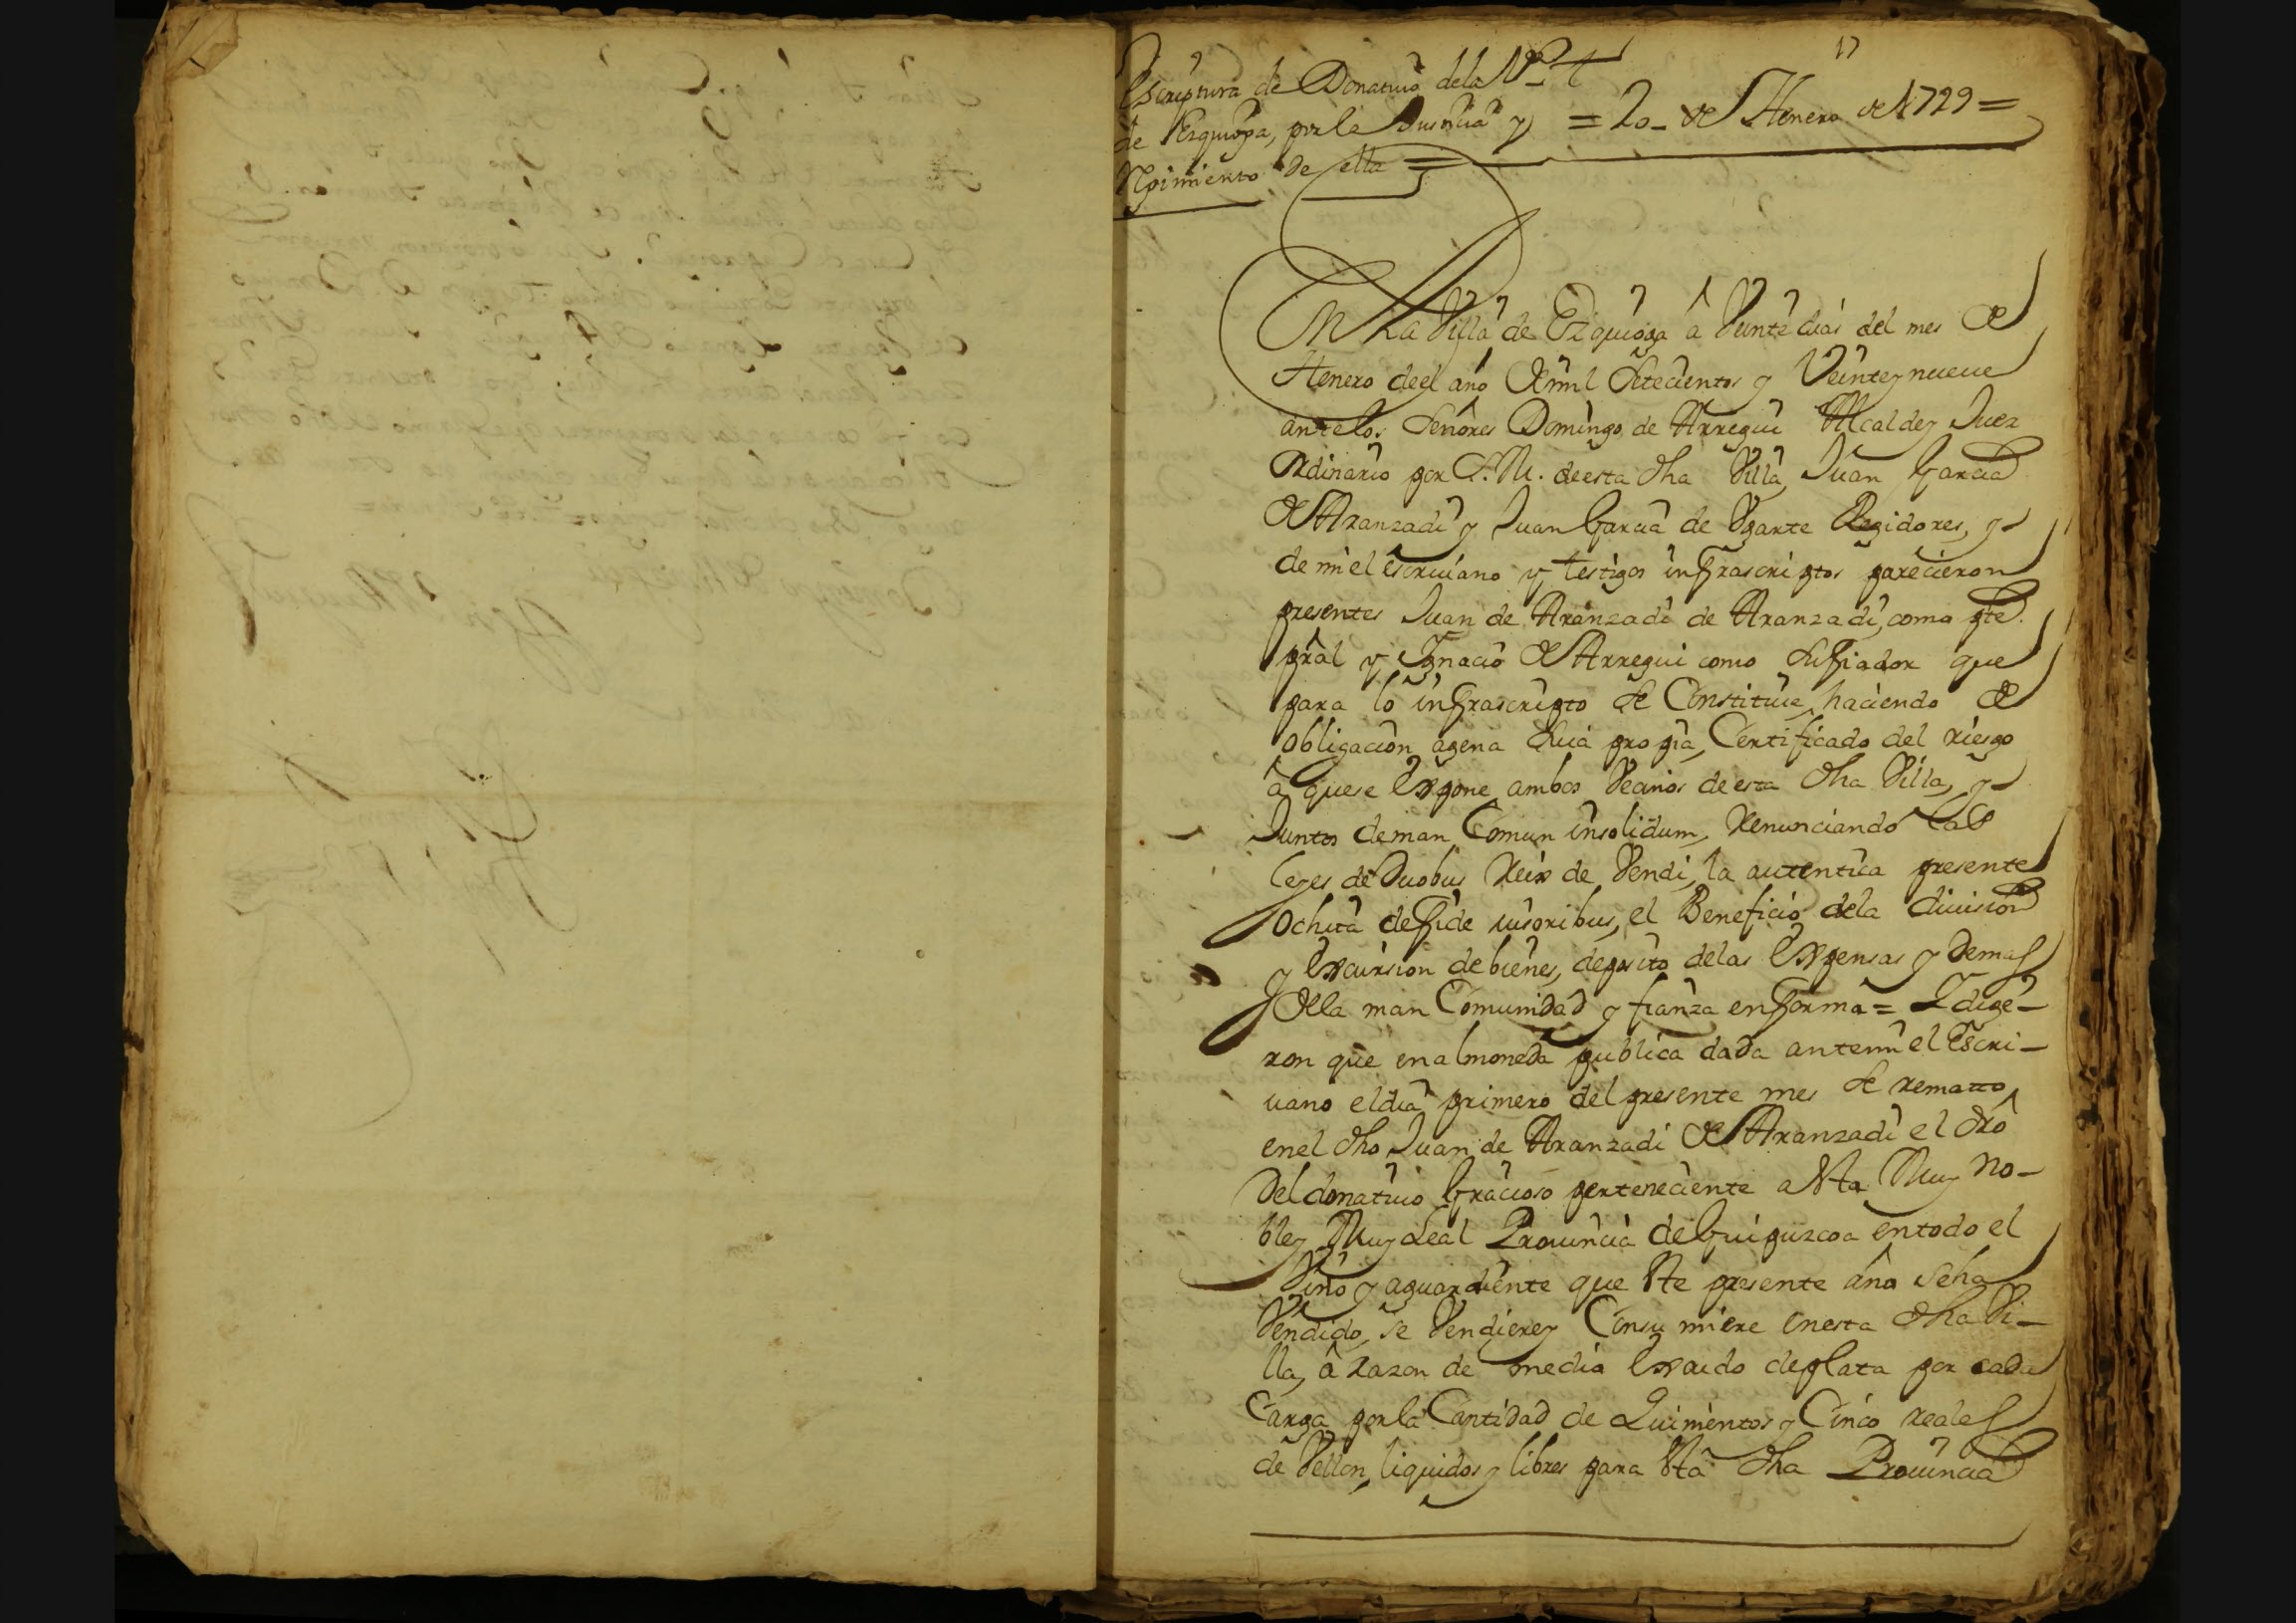 17
Escriptura de Donatiuo dela Vª
de Ezquioga, por la Justicia y = 20 de Henero de 1729 =
Rejimiento de ella =
En La Villa de Ezquioga â Veinte dias del mes de
Henero deel año de mil Setecientos y Veinte y nueue
ante los Señores Domingo de Arregui Alcalde y Juez
Ordinario por S. M. de esta dha Villa, Juan Garcia
de Aranzadi y Juan Garcia de Vgarte Regidores, y
de mi el escriuano y testigos infrascriptos parecieron
presentes Juan de Aranzadi de Aranzadi, como pte.
pral y Ignacio de Arregui como su fiador que
para lo infrascripto se Constituie, haciendo de
obligacion agena suia propia, Certificado del riesgo
â que se Expone, ambos Vecinos de esta dha Villa, y
Juntos de man Comun insolidum, renunciando las
leyes de Duobus Reix de Vendi, la autentica presente
Ochita de fide iusoribus, el Beneficio dela diuision
y Excursion de bienes, deposito delas Expensas y demas
de la man Comunidad y fianza en forma = Y dige-
ron que en almoneda publica dada ante mi el Escri-
uano el dia primero del presente mes se rematto
en el dho Juan de Aranzadi de Aranzadi el dro
Del donatiuo Gracioso perteneciente a Sta Muy No-
ble y Muy Leal Prouincia de Guipuzcoa en todo el
Vino y aguardiente que Ste presente año se ha
Vendido, se Vendiere y Consumiere en esta dha Vi-
lla, â razon de medio Escudo de plata por cada
Carga por la Cantidad de Quinientos y Cinco reales
de Vellon, liquidos y libres para Sta dha Prouincia